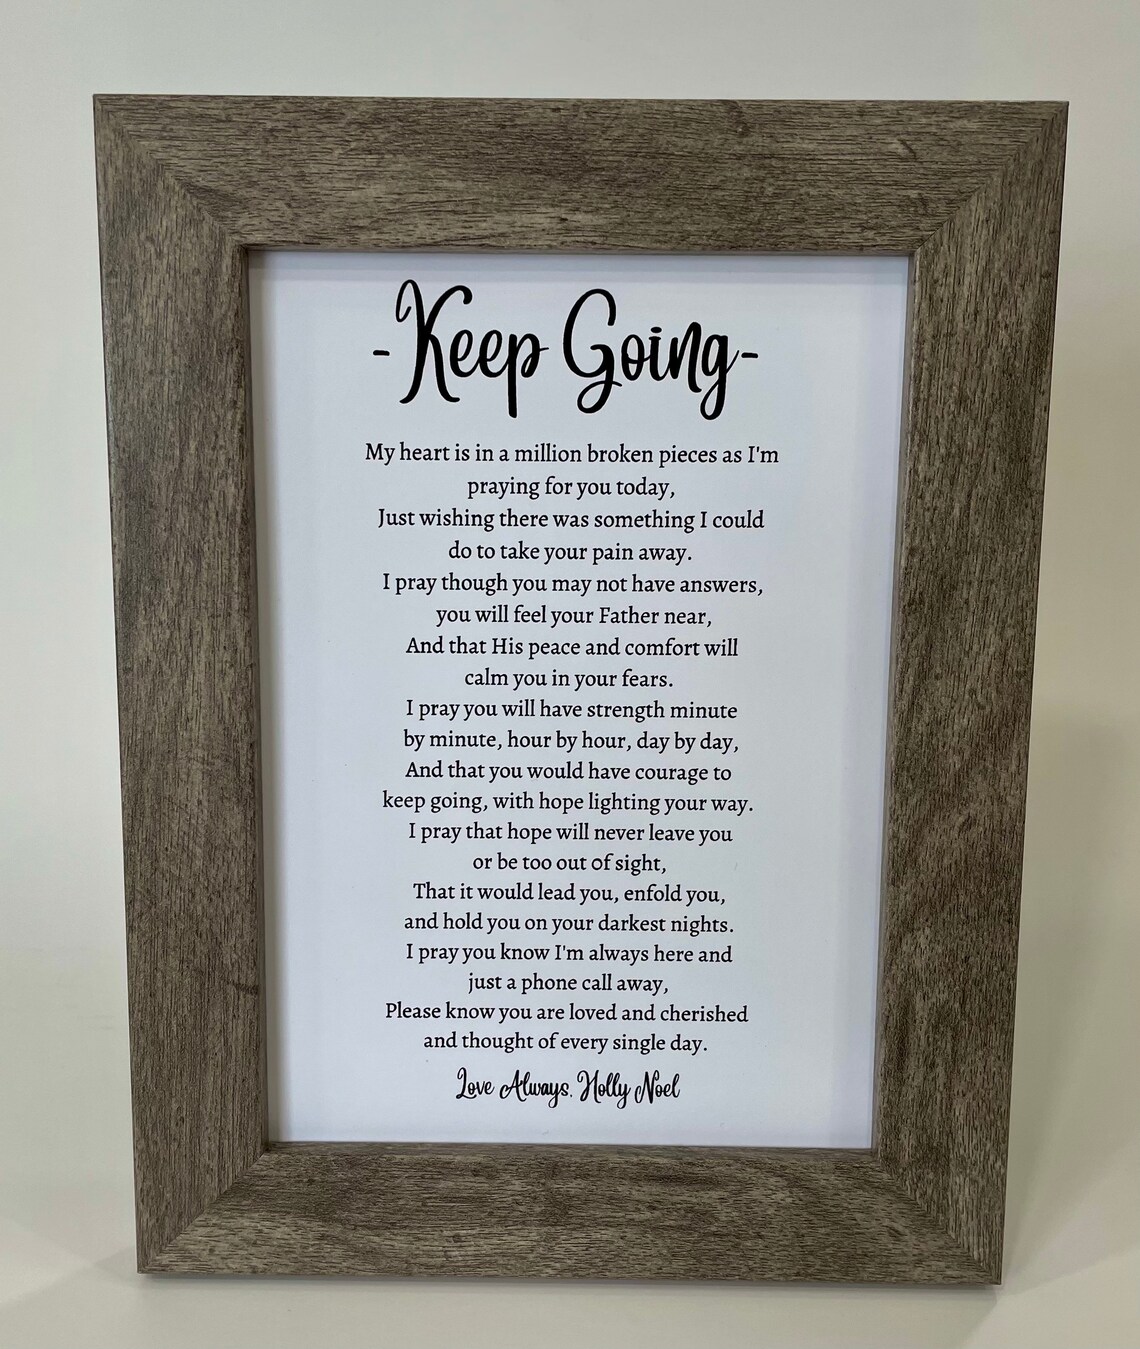 -Keep Going-
My heart is in a million broken pieces as I'm
praying for you today,
Just wishing there was something I could
do to take your pain away.
I pray though you may not have answers,
you will feel your Father near,
And that His peace and comfort will
calm you in your fears.
I pray you will have strength minute
by minute, hour by hour, day by day,
And that you would have courage to
keep going, with hope lighting your way.
I pray that hope will never leave you
or be too out of sight,
That it would lead you, enfold you,
and hold you on your darkest nights.
I pray you know I'm always here and
just a phone call away,
Please know you are loved and cherished
and thought of every single day.
Love Always, Holly Noel